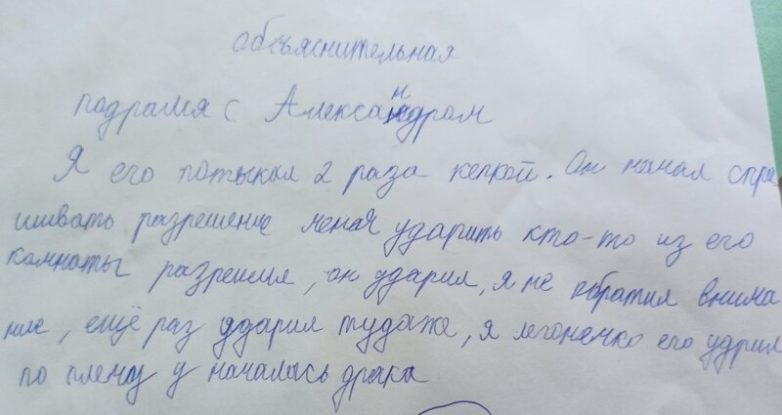 объяснительная
подрался с Александром
Я его потыкал 2 раза кепкой. Он начал спра
шивать разрешение меня ударить кто-то из его
комнаты разрешил, он ударил, я не обратил внима
ние, ещё раз ударил тудаже, я легоненко его удрил
по плечу у началась драка